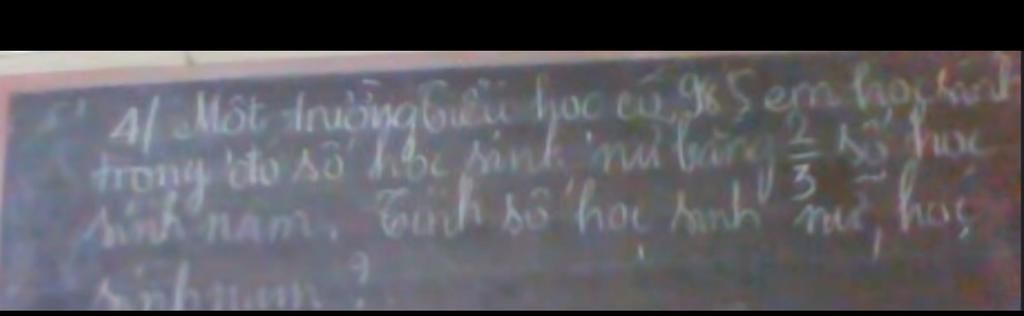 4/ Một trường tiểu học có 985 em học sinh
trong đó số học sinh nữ bằng 2/3 số học
sinh nam. Tính số học sinh nữ, học
sinh nam?